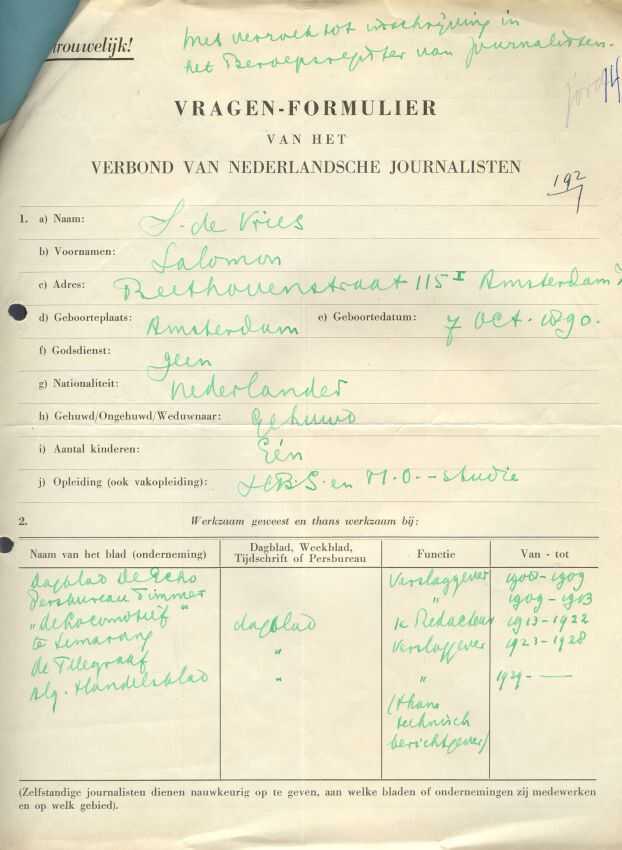 rouwelijk!
met verzoek tot inschrijving in
het Beroepsregister van Journalisten.
14
VRAGEN-FORMULIER
VAN HET
VERBOND VAN NEDERLANDSCHE JOURNALISTEN
192
1. a) Naam: S. de Vries
b) Voornamen: Salomon
c) Adres: Beethovenstraat 115 I Amsterdam Z
d) Geboorteplaats: Amsterdam e) Geboortedatum: 7 Oct. 1890.
f) Godsdienst: geen
g) Nationaliteit: Nederlander
h) Gehuwd/Ongehuwd/Weduwnaar: Gehuwd
i) Aantal kinderen: Eén
j) Opleiding (ook vakopleiding): H.B.S. en M.O.-studie
2. Werkzaam geweest en thans werkzaam bij:
Naam van het blad (onderneming) Dagblad, Weekblad, Tijdschrift of Persbureau Functie Van - tot
dagblad de Echo Verslaggever 1908-1909
Persbureau Timmer " 1909-1913
"de Locomotief" dagblad 1e Redacteur 1913-1922
te Semarang
de Telegraaf " Verslaggever 1923-1928
Alg. Handelsblad " " 1929- —
(thans
technisch
berichtgever)
(Zelfstandige journalisten dienen nauwkeurig op te geven, aan welke bladen of ondernemingen zij medewerken
en op welk gebied).